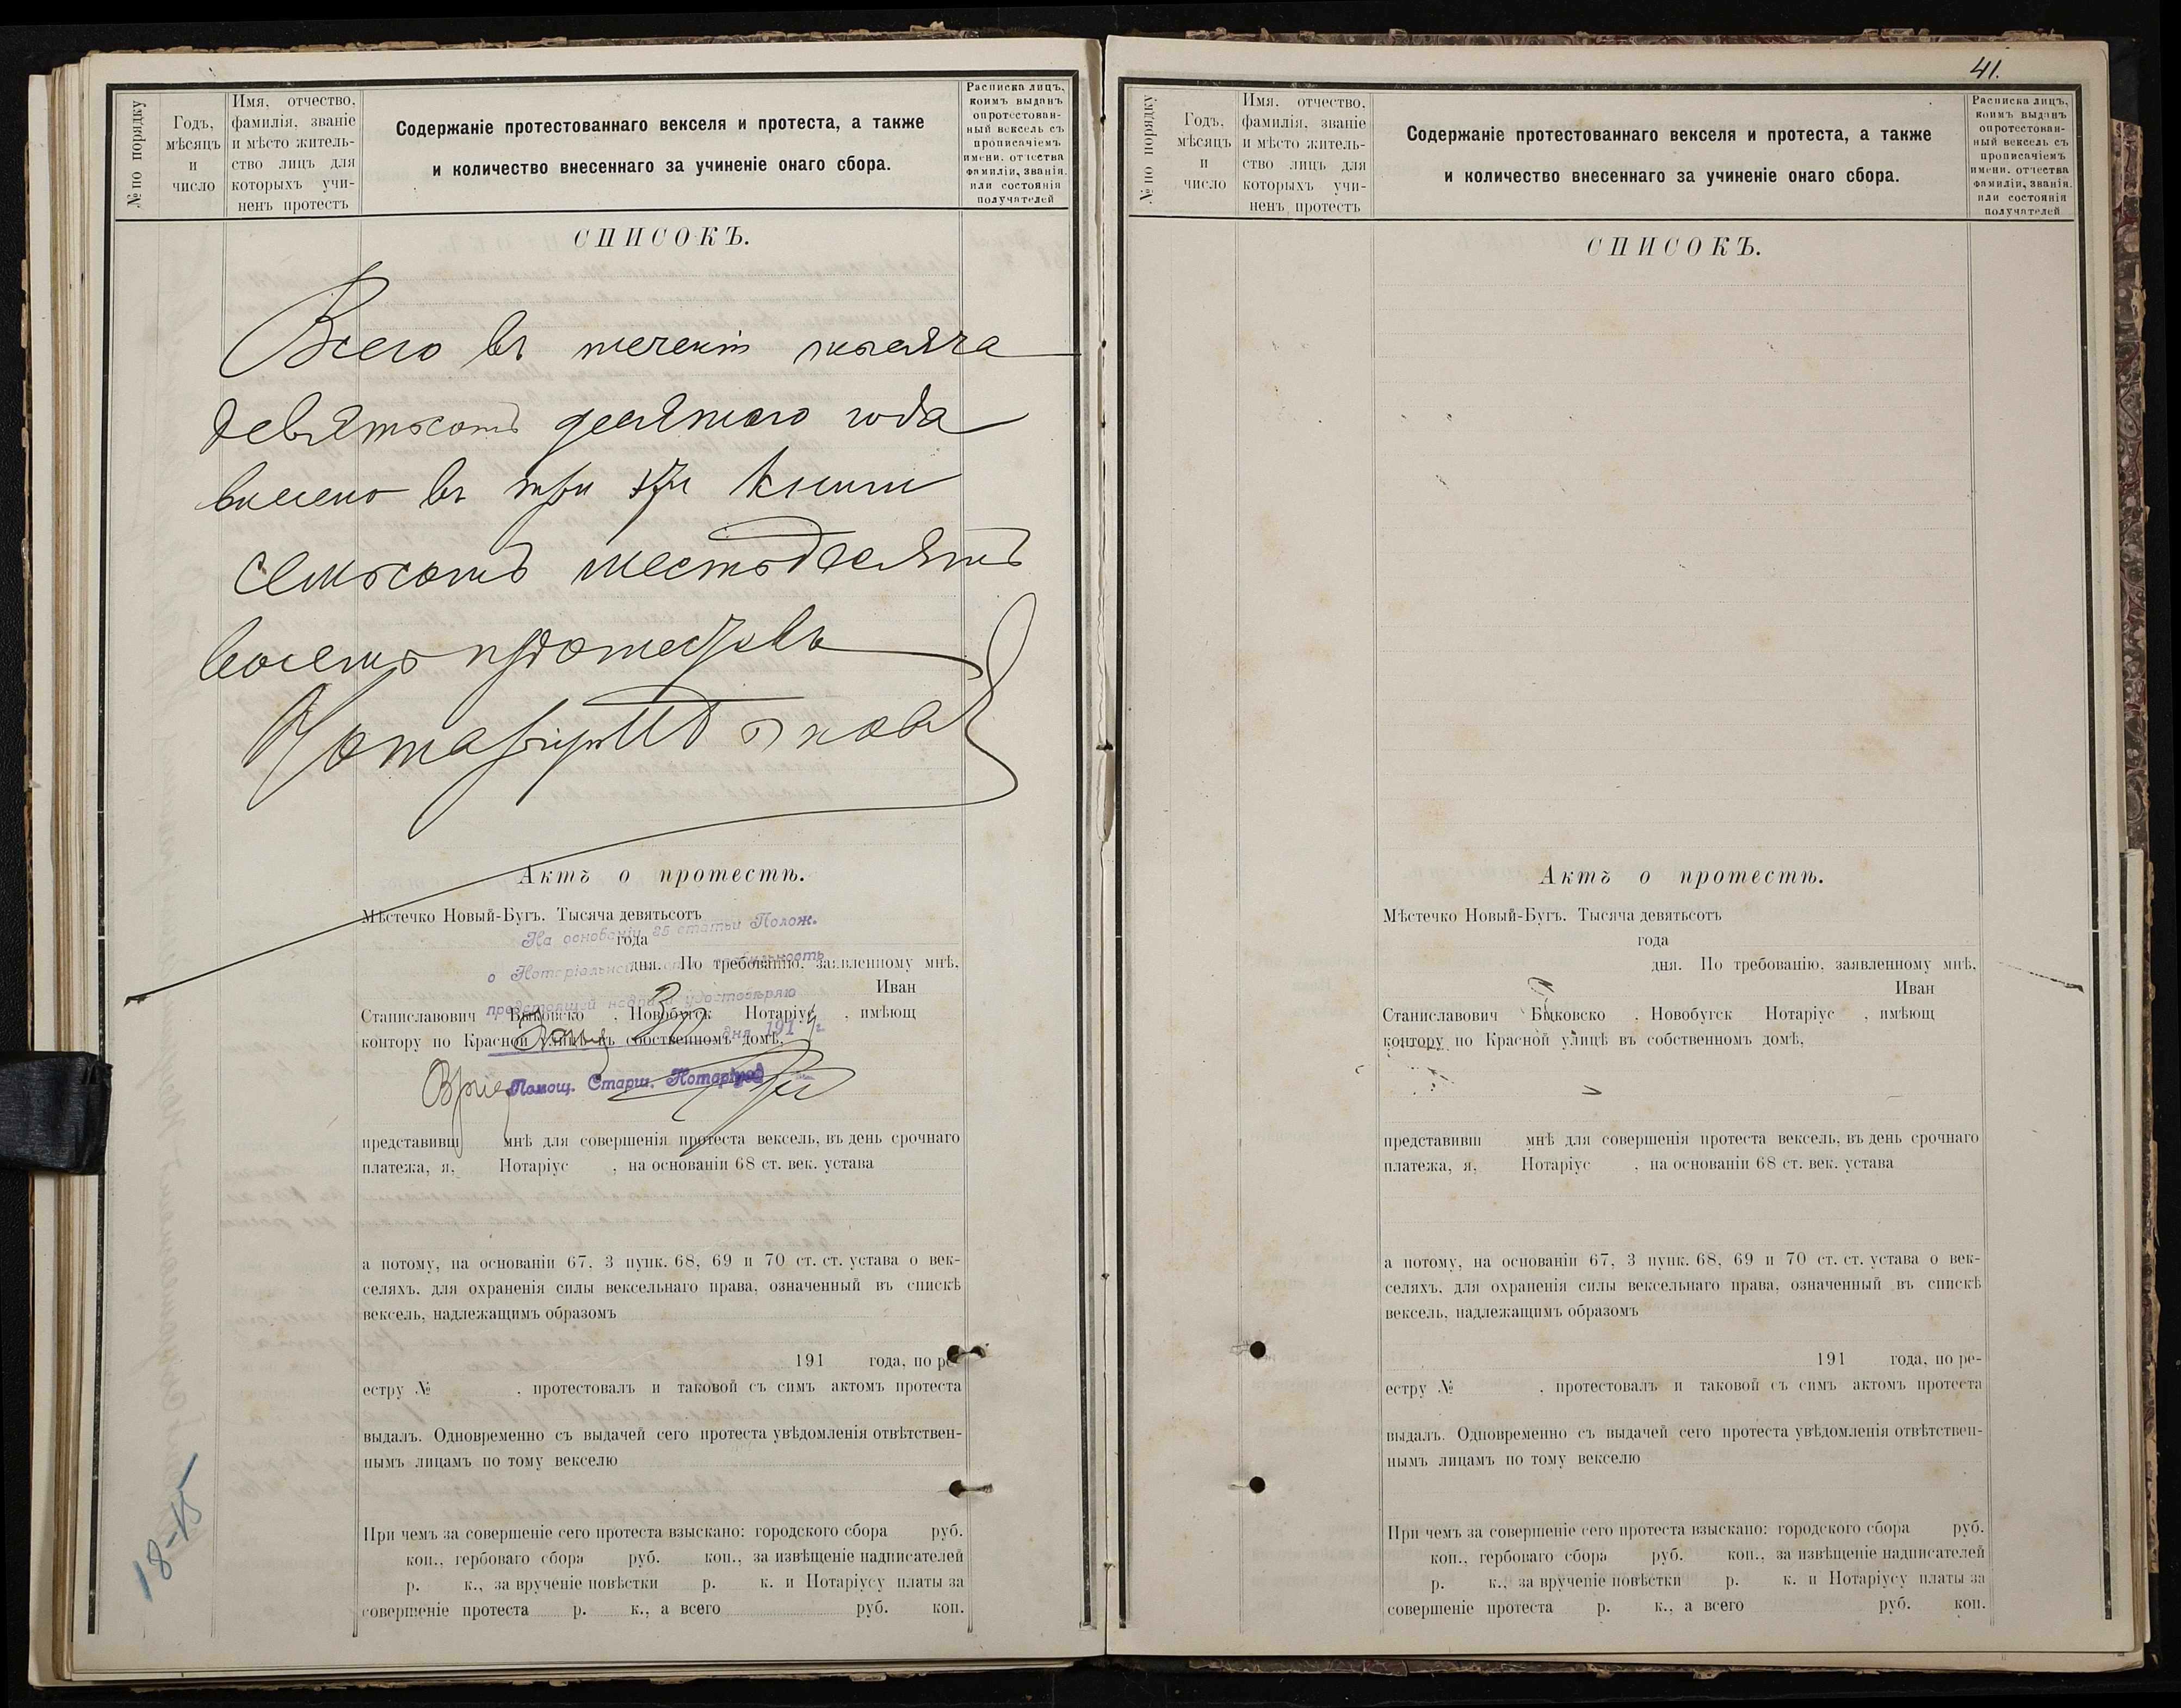 № по порядку
Годъ,
мѣсяцъ
и
число
Имя, отчество,
фамилія, званіе
и мѣсто житель-
ство лицъ для
которыхъ учи-
ненъ протестъ
Содержаніе протестованнаго векселя и протеста, а также
и количество внесеннаго за учиненіе онаго сбора.
Расписка лицъ,
коимъ выданъ
опротестован-
ный вексель съ
прописаніемъ
имени, отчества
фамиліи, званія,
или состоянія
получателей
СПИСОКЪ.
Всего въ теченіи тысяча
девятьсотъ десятаго года
внесено въ три книги
семьсотъ шестьдесятъ
восемь протестовъ
Нотаріусъ
Актъ о протестѣ.
Мѣстечко Новый-Бугъ. Тысяча девятьсотъ
На основаніи 35 статьи Полож.
года
о Нотаріальной
дня. По требованію, заявленному мнѣ,
Иван
предстоящей надписи удостовѣряю
Станиславович Быковско , Новобугск Нотаріус , имѣющ
дня 191 г.
контору по Красной улицѣ въ собственномъ домѣ,
Помощ. Старш. Нотаріуса
представивш мнѣ для совершенія протеста вексель, въ день срочнаго
платежа, я, Нотаріус , на основаніи 68 ст. век. устава
а потому, на основаніи 67, 3 пунк. 68, 69 и 70 ст. ст. устава о век-
селяхъ, для охраненія силы вексельнаго права, означенный въ спискѣ
вексель, надлежащимъ образомъ
191 года, по ре-
естру № , протестовалъ и таковой съ симъ актомъ протеста
выдалъ. Одновременно съ выдачей сего протеста увѣдомленія отвѣтствен-
нымъ лицамъ по тому векселю
При чемъ за совершеніе сего протеста взыскано: городского сбора руб.
коп., гербоваго сбора руб. коп., за извѣщеніе надписателей
р. к., за врученіе повѣстки р. к. и Нотаріусу платы за
совершеніе протеста р. к., а всего руб. коп.
41.
№ по порядку
Годъ,
мѣсяцъ
и
число
Имя, отчество,
фамилія, званіе
и мѣсто житель-
ство лицъ для
которыхъ учи-
ненъ протестъ
Содержаніе протестованнаго векселя и протеста, а также
и количество внесеннаго за учиненіе онаго сбора.
Расписка лицъ,
коимъ выданъ
опротестован-
ный вексель съ
прописаніемъ
имени, отчества
фамиліи, званія,
или состоянія
получателей
СПИСОКЪ.
Актъ о протестѣ.
Мѣстечко Новый-Бугъ. Тысяча девятьсотъ
года
дня. По требованію, заявленному мнѣ,
Иван
Станиславович Быковско , Новобугск Нотаріус , имѣющ
контору по Красной улицѣ въ собственномъ домѣ,
представивш мнѣ для совершенія протеста вексель, въ день срочнаго
платежа, я, Нотаріус , на основаніи 68 ст. век. устава
а потому, на основаніи 67, 3 пунк. 68, 69 и 70 ст. ст. устава о век-
селяхъ, для охраненія силы вексельнаго права, означенный въ спискѣ
вексель, надлежащимъ образомъ
191 года, по ре-
естру № , протестовалъ и таковой съ симъ актомъ протеста
выдалъ. Одновременно съ выдачей сего протеста увѣдомленія отвѣтствен-
нымъ лицамъ по тому векселю
При чемъ за совершеніе сего протеста взыскано: городского сбора руб.
коп., гербоваго сбора руб. коп., за извѣщеніе надписателей
р. к., за врученіе повѣстки р. к. и Нотаріусу платы за
совершеніе протеста р. к., а всего руб. коп.